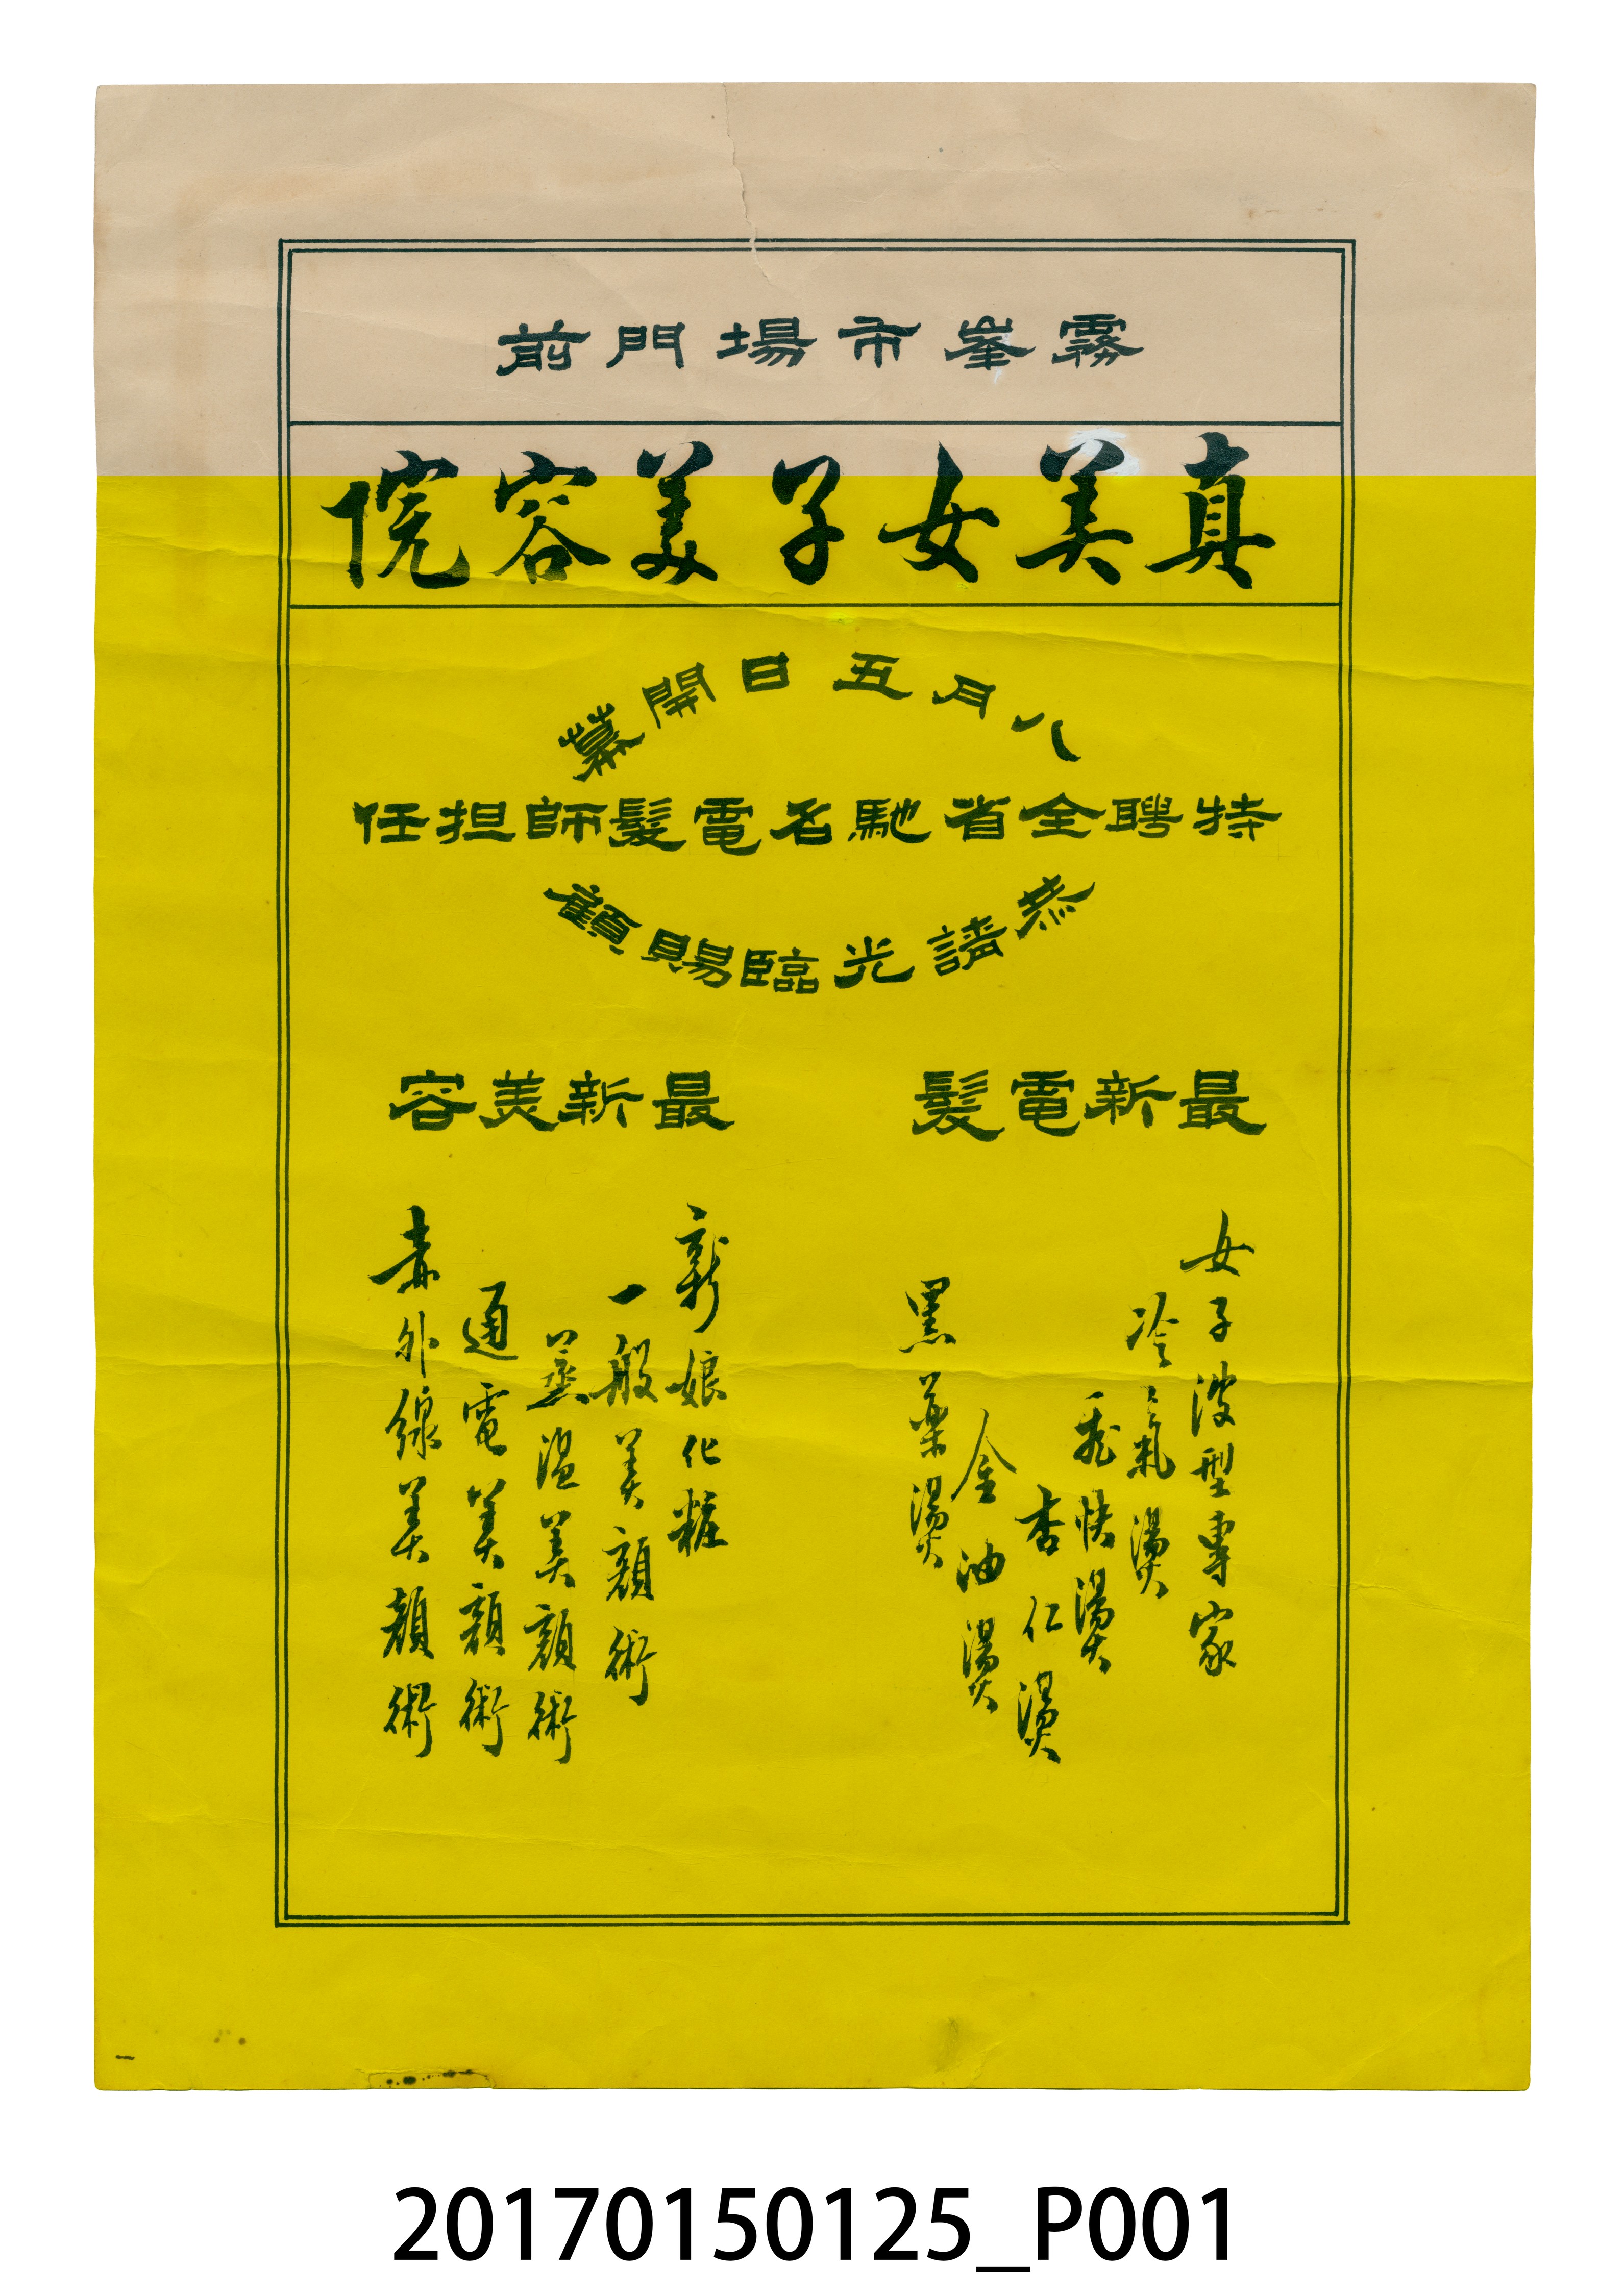 霧峯市場門前
真美女子美容院
八月五日開幕
特聘全省馳名電髮師担任
恭請光臨賜顧
最新電髮
女子波型專家
冷氣燙
飛快燙
杏仁燙
金油燙
黑藥燙
最新美容
新娘化粧
一般美顏術
蒸溫美顏術
通電美顏術
赤外線美顏術
20170150125_P001